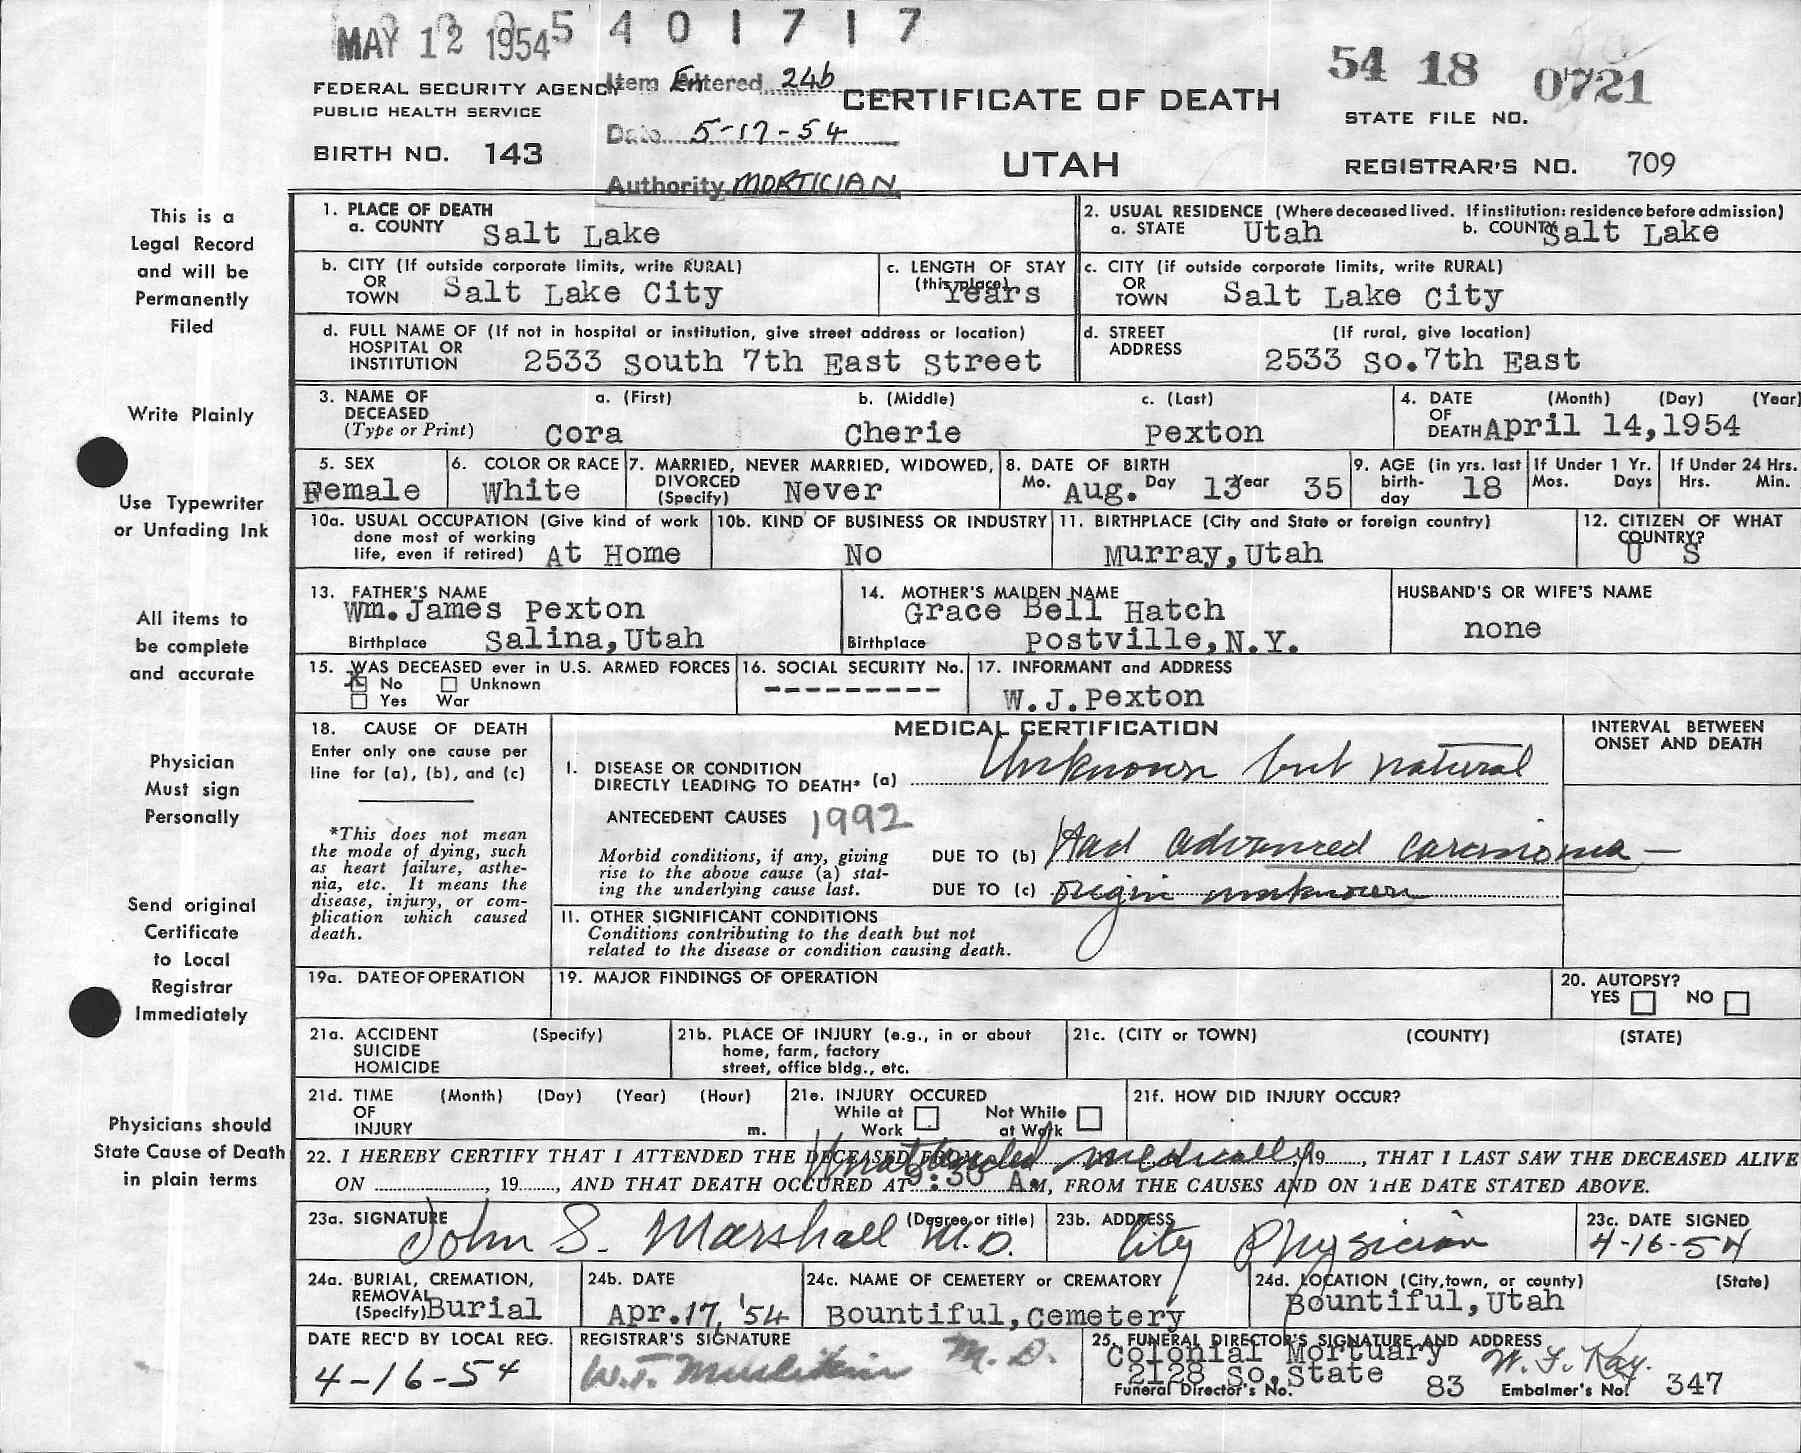 MAY 12 1954 5 4 0 1 7 1 7
54 18 0721
FEDERAL SECURITY AGENCY
PUBLIC HEALTH SERVICE
Item Entered 24b
Date 5-17-54
Authority MORTICIAN
CERTIFICATE OF DEATH
UTAH
STATE FILE NO.
BIRTH NO. 143
REGISTRAR'S NO. 709
This is a
Legal Record
and will be
Permanently
Filed
Write Plainly
Use Typewriter
or Unfading Ink
All items to
be complete
and accurate
Physician
Must sign
Personally
Send original
Certificate
to Local
Registrar
Immediately
Physicians should
State Cause of Death
in plain terms
1. PLACE OF DEATH
a. COUNTY Salt Lake
2. USUAL RESIDENCE (Where deceased lived. If institution: residence before admission)
a. STATE Utah b. COUNTY Salt Lake
b. CITY (If outside corporate limits, write RURAL)
OR
TOWN Salt Lake City
c. LENGTH OF STAY
(this place) Years
c. CITY (if outside corporate limits, write RURAL)
OR
TOWN Salt Lake City
d. FULL NAME OF (If not in hospital or institution, give street address or location)
HOSPITAL OR
INSTITUTION 2533 South 7th East Street
d. STREET (If rural, give location)
ADDRESS 2533 So.7th East
3. NAME OF
DECEASED
(Type or Print)
a. (First) b. (Middle) c. (Last)
Cora Cherie Pexton
4. DATE (Month) (Day) (Year)
OF
DEATH April 14,1954
5. SEX
Female
6. COLOR OR RACE
White
7. MARRIED, NEVER MARRIED, WIDOWED,
DIVORCED
(Specify) Never
8. DATE OF BIRTH
Mo. Aug. Day 13 Year 35
9. AGE (in yrs. last
birth-
day 18
If Under 1 Yr.
Mos. Days
If Under 24 Hrs.
Hrs. Min.
10a. USUAL OCCUPATION (Give kind of work
done most of working
life, even if retired) At Home
10b. KIND OF BUSINESS OR INDUSTRY
No
11. BIRTHPLACE (City and State or foreign country)
Murray,Utah
12. CITIZEN OF WHAT
COUNTRY?
U S
13. FATHER'S NAME
Wm.James Pexton
Birthplace Salina,Utah
14. MOTHER'S MAIDEN NAME
Grace Bell Hatch
Birthplace Postville,N.Y.
HUSBAND'S OR WIFE'S NAME
none
15. WAS DECEASED ever in U.S. ARMED FORCES
X No Unknown
Yes War
16. SOCIAL SECURITY No.
---------
17. INFORMANT and ADDRESS
W.J.Pexton
18. CAUSE OF DEATH
Enter only one cause per
line for (a), (b), and (c)
*This does not mean
the mode of dying, such
as heart failure, asthe-
nia, etc. It means the
disease, injury, or com-
plication which caused
death.
MEDICAL CERTIFICATION
I. DISEASE OR CONDITION
DIRECTLY LEADING TO DEATH* (a) Unknown but natural
ANTECEDENT CAUSES 1992
Morbid conditions, if any, giving
rise to the above cause (a) stat-
ing the underlying cause last.
DUE TO (b) Had advanced carcinoma -
DUE TO (c) origin unknown
II. OTHER SIGNIFICANT CONDITIONS
Conditions contributing to the death but not
related to the disease or condition causing death.
INTERVAL BETWEEN
ONSET AND DEATH
19a. DATE OF OPERATION
19. MAJOR FINDINGS OF OPERATION
20. AUTOPSY?
YES NO
21a. ACCIDENT (Specify)
SUICIDE
HOMICIDE
21b. PLACE OF INJURY (e.g., in or about
home, farm, factory
street, office bldg., etc.
21c. (CITY or TOWN) (COUNTY) (STATE)
21d. TIME (Month) (Day) (Year) (Hour)
OF
INJURY m.
21e. INJURY OCCURED
While at Work Not While at Work
21f. HOW DID INJURY OCCUR?
22. I HEREBY CERTIFY THAT I ATTENDED THE DECEASED FROM Unattended medically, 19....., THAT I LAST SAW THE DECEASED ALIVE
ON ................, 19......, AND THAT DEATH OCCURED AT 9:30 A.M, FROM THE CAUSES AND ON THE DATE STATED ABOVE.
23a. SIGNATURE (Degree or title)
John S. Marshall M.D.
23b. ADDRESS
City Physician
23c. DATE SIGNED
4-16-54
24a. BURIAL, CREMATION,
REMOVAL
(Specify) Burial
24b. DATE
Apr.17, '54
24c. NAME OF CEMETERY or CREMATORY
Bountiful,Cemetery
24d. LOCATION (City,town, or county) (State)
Bountiful,Utah
DATE REC'D BY LOCAL REG.
4-16-54
REGISTRAR'S SIGNATURE
W.T. M.D.
25. FUNERAL DIRECTOR'S SIGNATURE AND ADDRESS
Colonial Mortuary W. F. Kay.
2128 So.State
Funeral Director's No. 83 Embalmer's No. 347